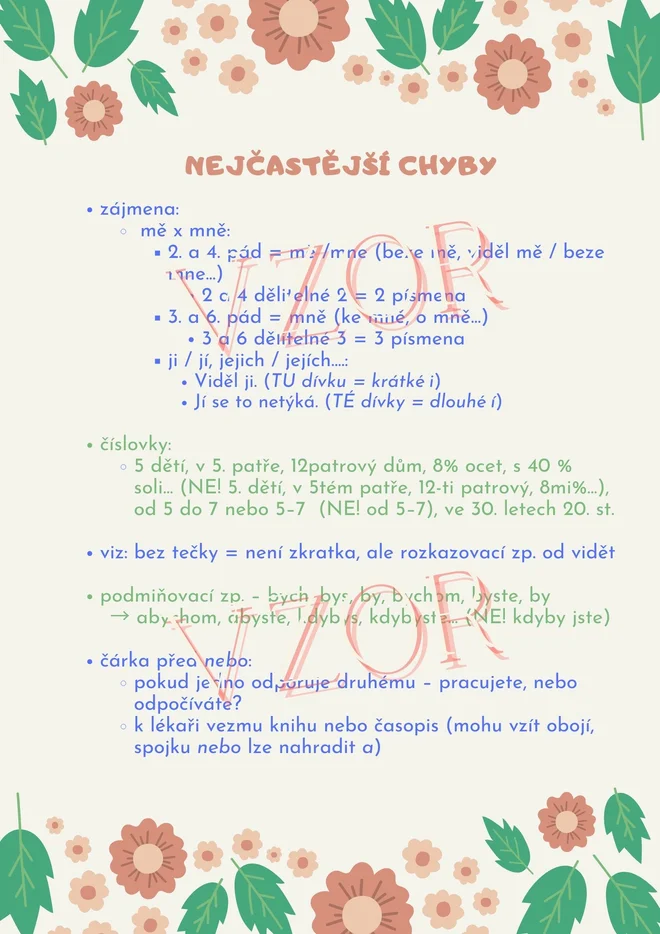 NEJČASTĚJŠÍ CHYBY
• zájmena:
◦ mě x mně:
▪ 2. a 4. pád = mě/mne (beze mě, viděl mě / beze
mne...)
• 2 a 4 dělitelné 2 = 2 písmena
▪ 3. a 6. pád = mně (ke mně, o mně...)
• 3 a 6 dělitelné 3 = 3 písmena
▪ ji / jí, jejich / jejích....:
• Viděl ji. (TU dívku = krátké i)
• Jí se to netýká. (TÉ dívky = dlouhé í)
• číslovky:
◦ 5 dětí, v 5. patře, 12patrový dům, 8% ocet, s 40 %
soli... (NE! 5. dětí, v 5tém patře, 12-ti patrový, 8mi%...),
od 5 do 7 nebo 5–7 (NE! od 5–7), ve 30. letech 20. st.
• viz: bez tečky = není zkratka, ale rozkazovací zp. od vidět
• podmiňovací zp. – bych, bys, by, bychom, byste, by
→ abychom, abyste, kdybys, kdybyste... (NE! kdyby jste)
• čárka před nebo:
◦ pokud jedno odporuje druhému – pracujete, nebo
odpočíváte?
◦ k lékaři vezmu knihu nebo časopis (mohu vzít obojí,
spojku nebo lze nahradit a)
VZOR
VZOR